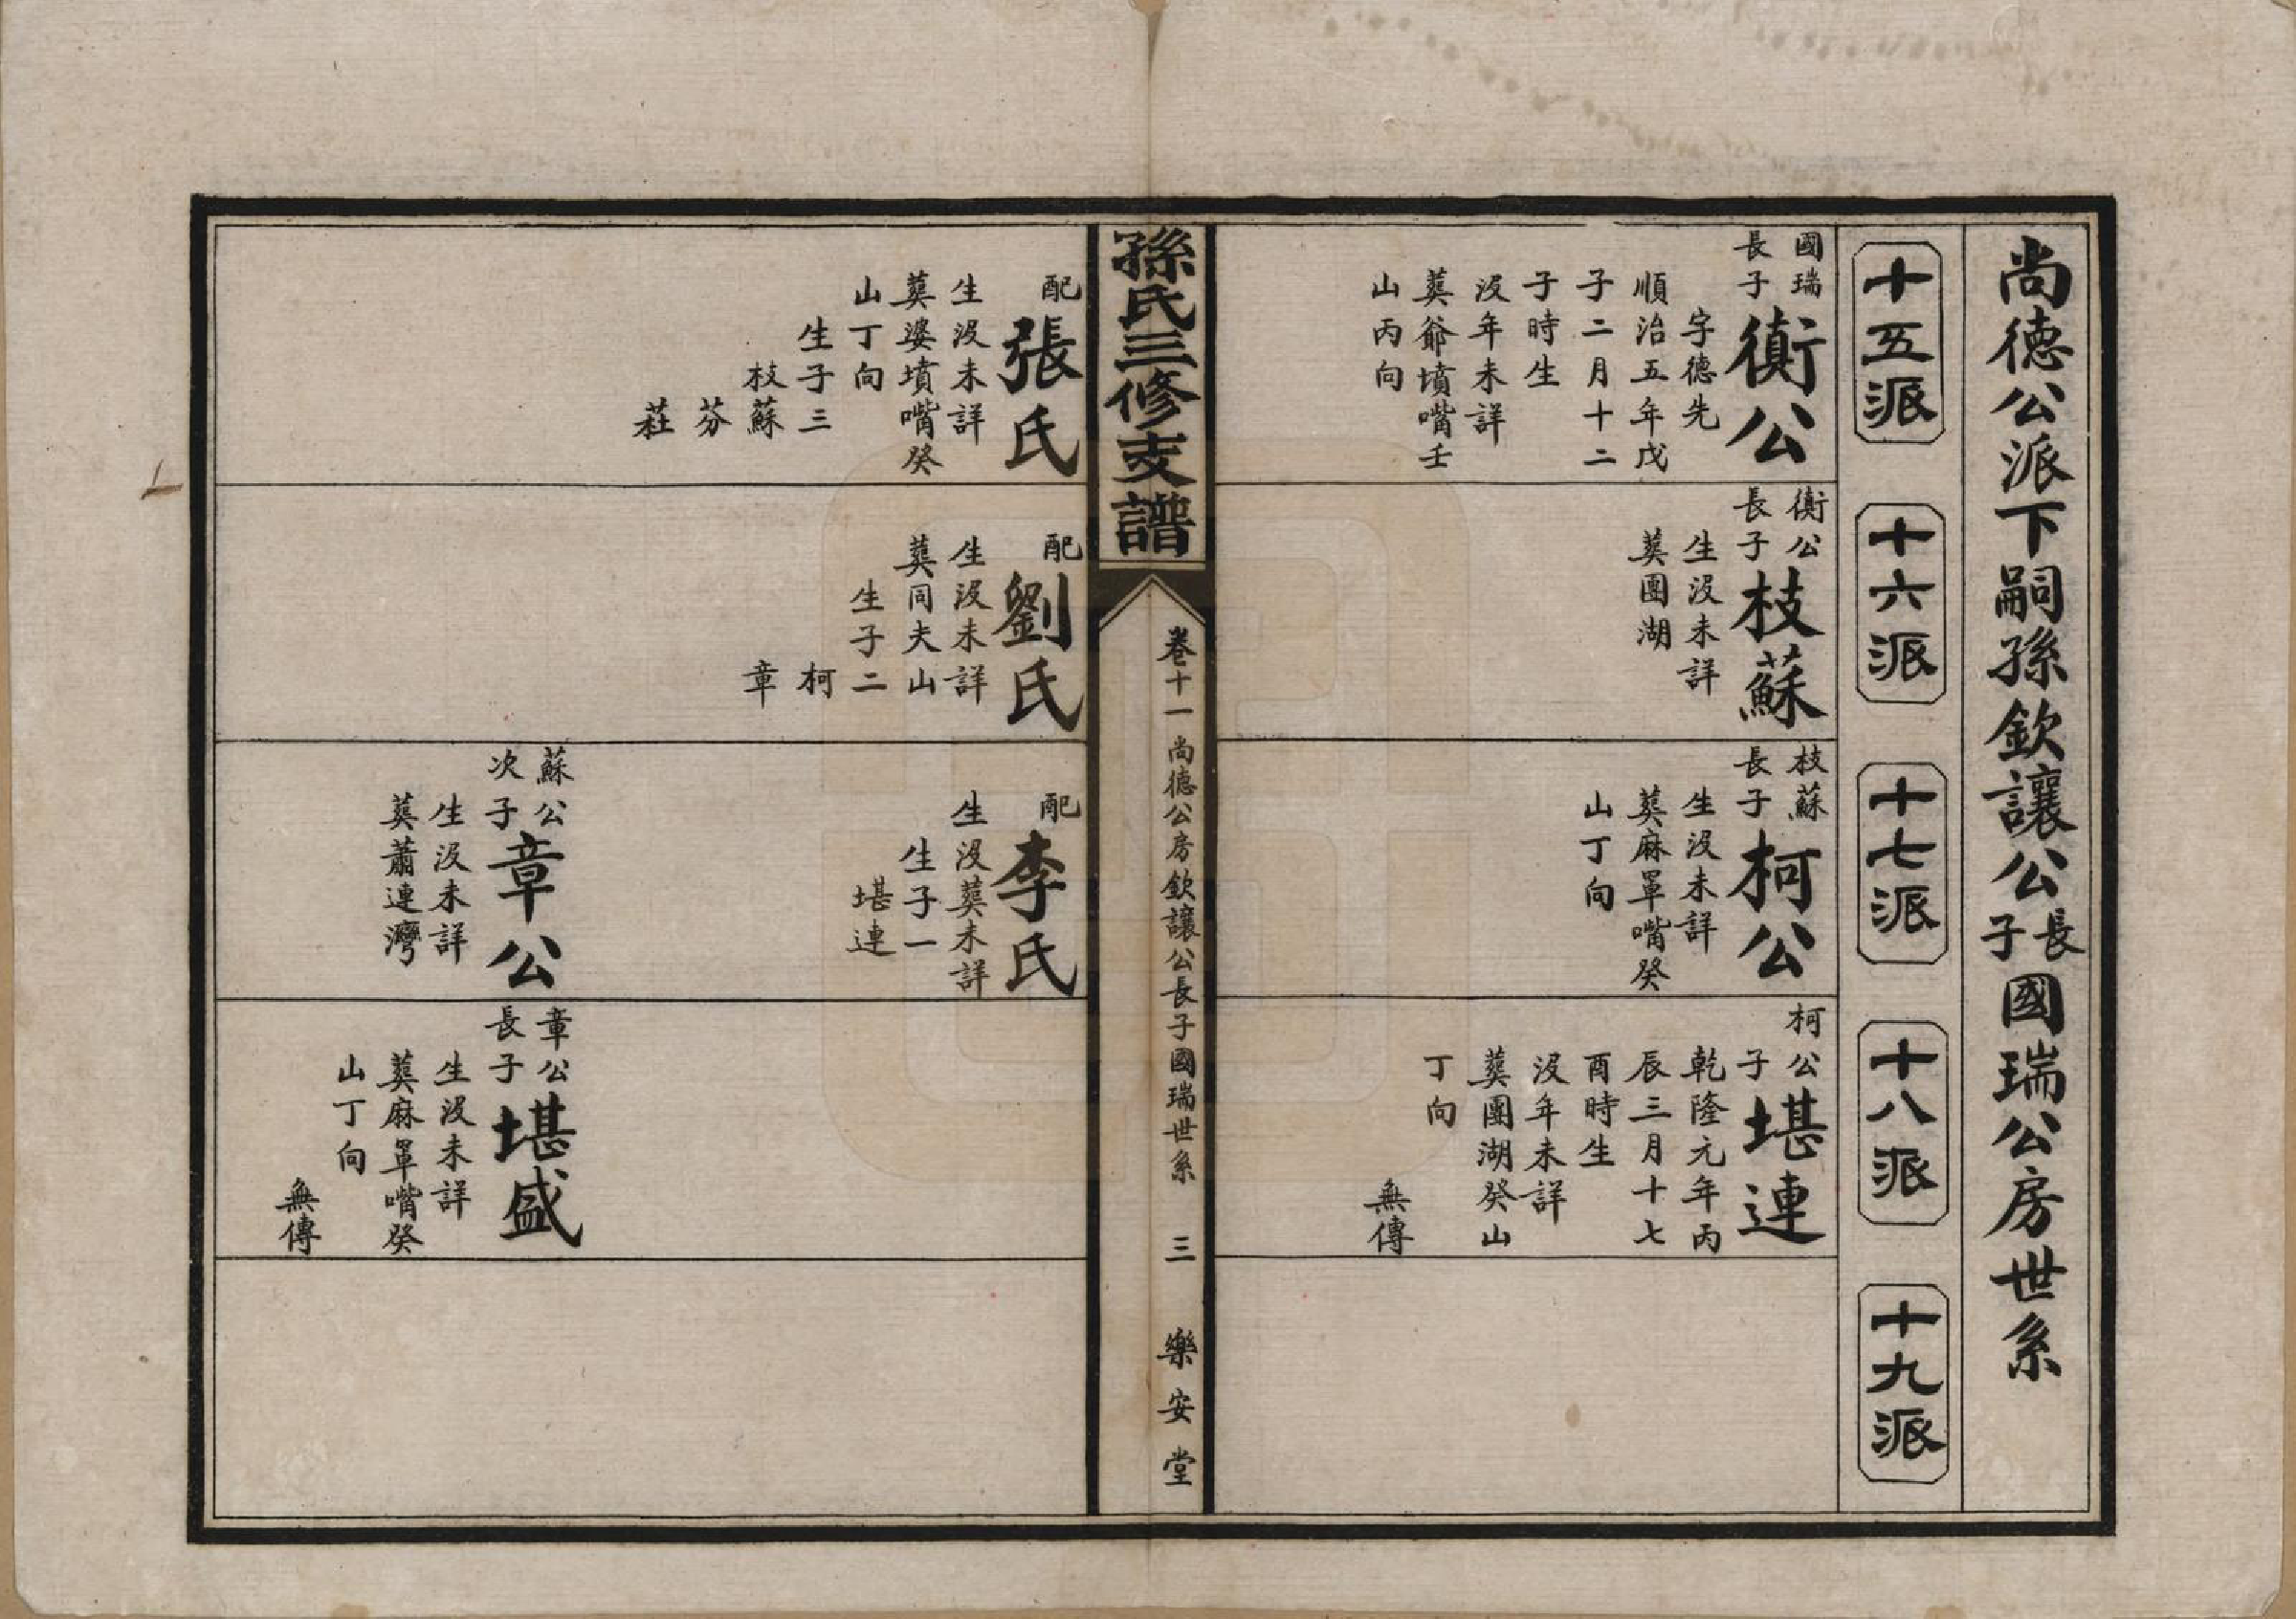 尚德公派下嗣孫欽讓公長子國瑞公房世系
十五派
十六派
十七派
十八派
十九派
國瑞
長子
衡公
字德先
順治五年戊
子二月十二
子時生
沒年未詳
葬爺墳嘴壬
山丙向
衡公
長子
枝蘇
生沒未詳
葬團湖
枝蘇
長子
柯公
生沒未詳
葬麻罩嘴癸
山丁向
柯公
子
堪連
乾隆元年丙
辰三月十七
酉時生
沒年未詳
葬團湖癸山
丁向
無傳
孫氏三修支譜
卷十一
尚德公房欽讓公長子國瑞世系
三
樂安堂
配
張氏
生沒未詳
葬婆墳嘴癸
山丁向
生子三
枝蘇
芬
莊
配
劉氏
生沒未詳
葬同夫山
生子二
柯
章
配
李氏
生沒葬未詳
生子一
堪連
蘇公
次子
章公
生沒未詳
葬蕭連灣
章公
長子
堪盛
生沒未詳
葬麻罩嘴癸
山丁向
無傳